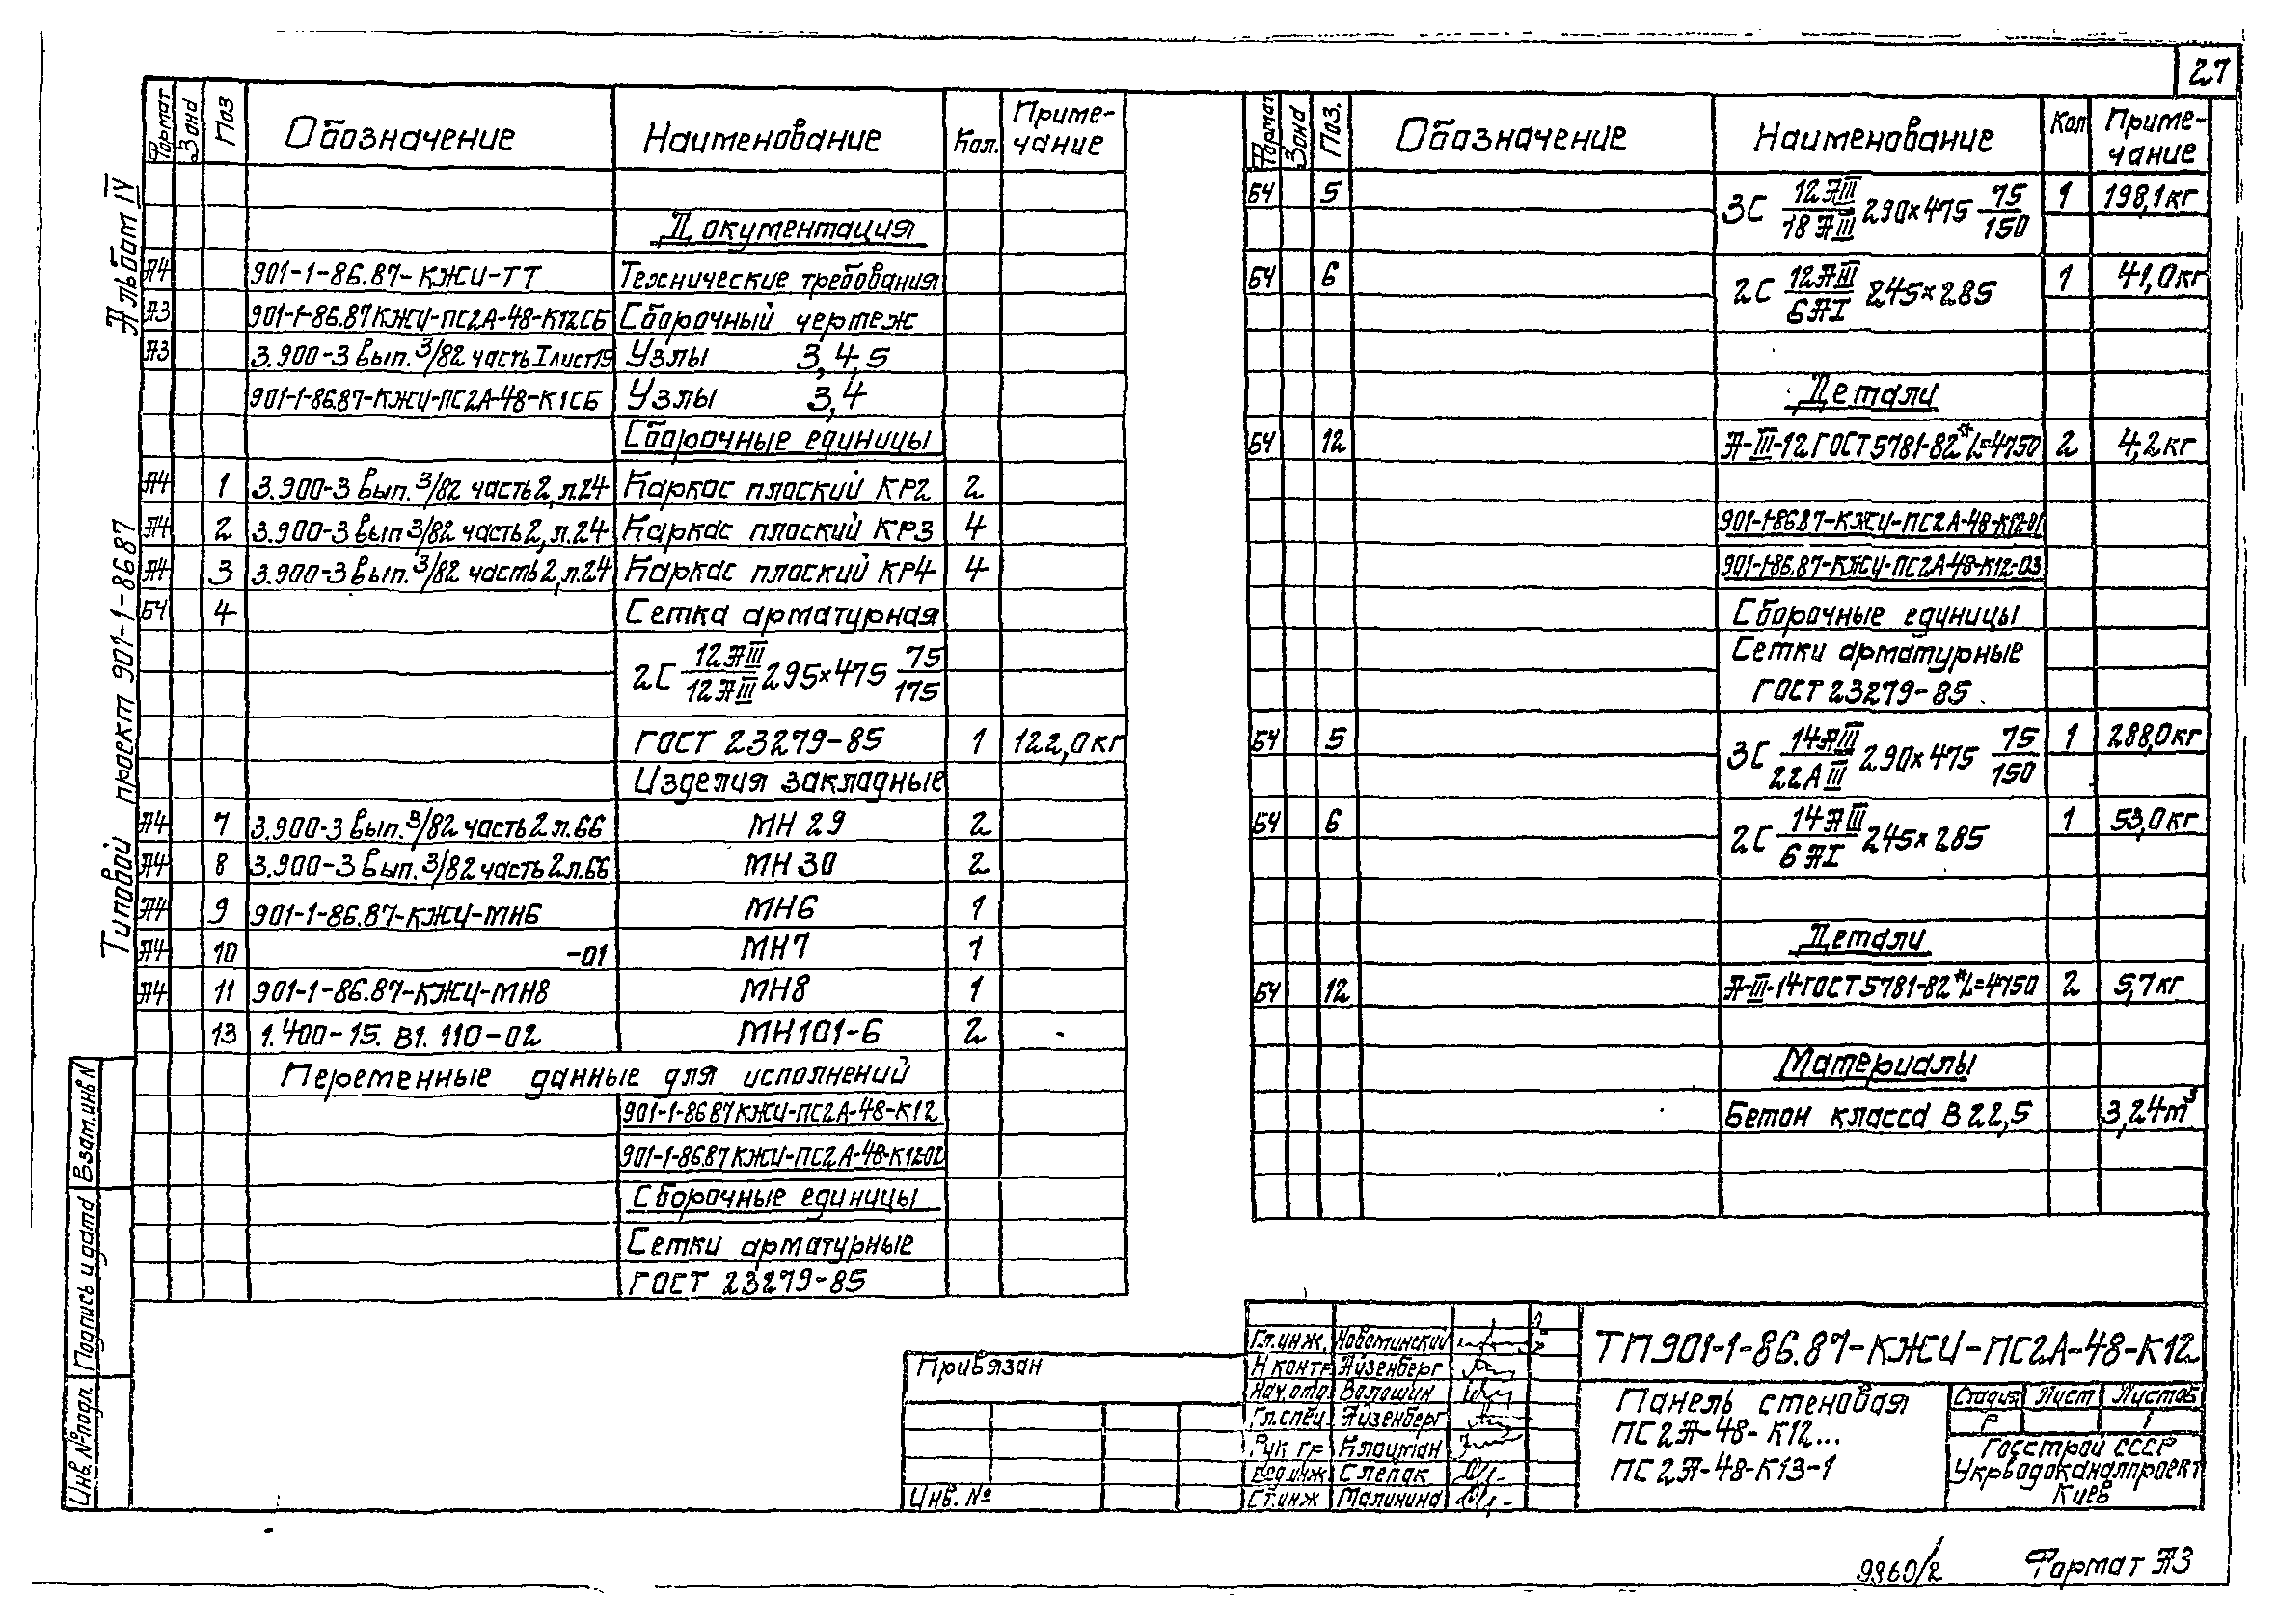 27
Альбом IV
Типовой проект 901-1-86.87
Формат Зона Поз Обозначение Наименование Кол. Приме-чание
Документация
А4 901-1-86.87-КЖИ-ТТ Технические требования
А3 901-1-86.87КЖИ-ПС2А-48-К12СБ Сборочный чертеж
А3 3.900-3 Вып. 3/82 часть I лист 15 Узлы 3,4,5
901-1-86.87-КЖИ-ПС2А-48-К1СБ Узлы 3,4
Сборочные единицы
А4 1 3.900-3 Вып. 3/82 часть 2, л.24 Каркас плоский КР2 2
А4 2 3.900-3 Вып 3/82 часть 2, л.24 Каркас плоский КР3 4
А4 3 3.900-3 Вып. 3/82 часть 2, л.24 Каркас плоский КР4 4
БЧ 4 Сетка арматурная
2С 12АIII/12АIII 295×475 75/175
ГОСТ 23279-85 1 122,0кг
Изделия закладные
А4 7 3.900-3 Вып. 3/82 часть 2 л.66 МН 29 2
А4 8 3.900-3 Вып. 3/82 часть 2 л.66 МН 30 2
А4 9 901-1-86.87-КЖИ-МН6 МН6 1
А4 10 -01 МН7 1
А4 11 901-1-86.87-КЖИ-МН8 МН8 1
13 1.400-15. В1. 110-02 МН101-6 2
Переменные данные для исполнений
901-1-86 87 КЖИ-ПС2А-48-К12
901-1-86.87 КЖИ-ПС2А-48-К12-02
Сборочные единицы
Сетки арматурные
ГОСТ 23279-85
Формат Зона Поз. Обозначение Наименование Кол Приме-чание
БЧ 5 3С 12АIII/18АIII 290×475 75/150 1 198,1кг
БЧ 6 2С 12АIII/6АI 245×285 1 41,0кг
Детали
БЧ 12 А-III-12 ГОСТ 5781-82* L=4750 2 4,2кг
901-1-86.87-КЖИ-ПС2А-48-К12-01
901-1-86.87-КЖИ-ПС2А-48-К12-03
Сборочные единицы
Сетки арматурные
ГОСТ 23279-85
БЧ 5 3С 14АIII/22АIII 290×475 75/150 1 288,0кг
БЧ 6 2С 14АIII/6АI 245×285 1 53,0кг
Детали
БЧ 12 А-III-14 ГОСТ 5781-82* L=4750 2 5,7кг
Материалы
Бетон класса В 22,5 3,24м³
Взам.инв N
Подпись и дата
Инв. №подл.
Привязан
Инв. №
Гл.инж. Новоминский
Н контр Айзенберг
Нач.отд. Волошин
Гл.спец Айзенберг
Рук гр Клоцман
Вед инж Слепак
Ст.инж Малинина
ТП901-1-86.87-КЖИ-ПС2А-48-К12
Панель стеновая
ПС2А-48-К12...
ПС2А-48-К13-1
Стадия Лист Листов
Р 1
Госстрой СССР
Укрводоканалпроект
Киев
9860/2
Формат А3